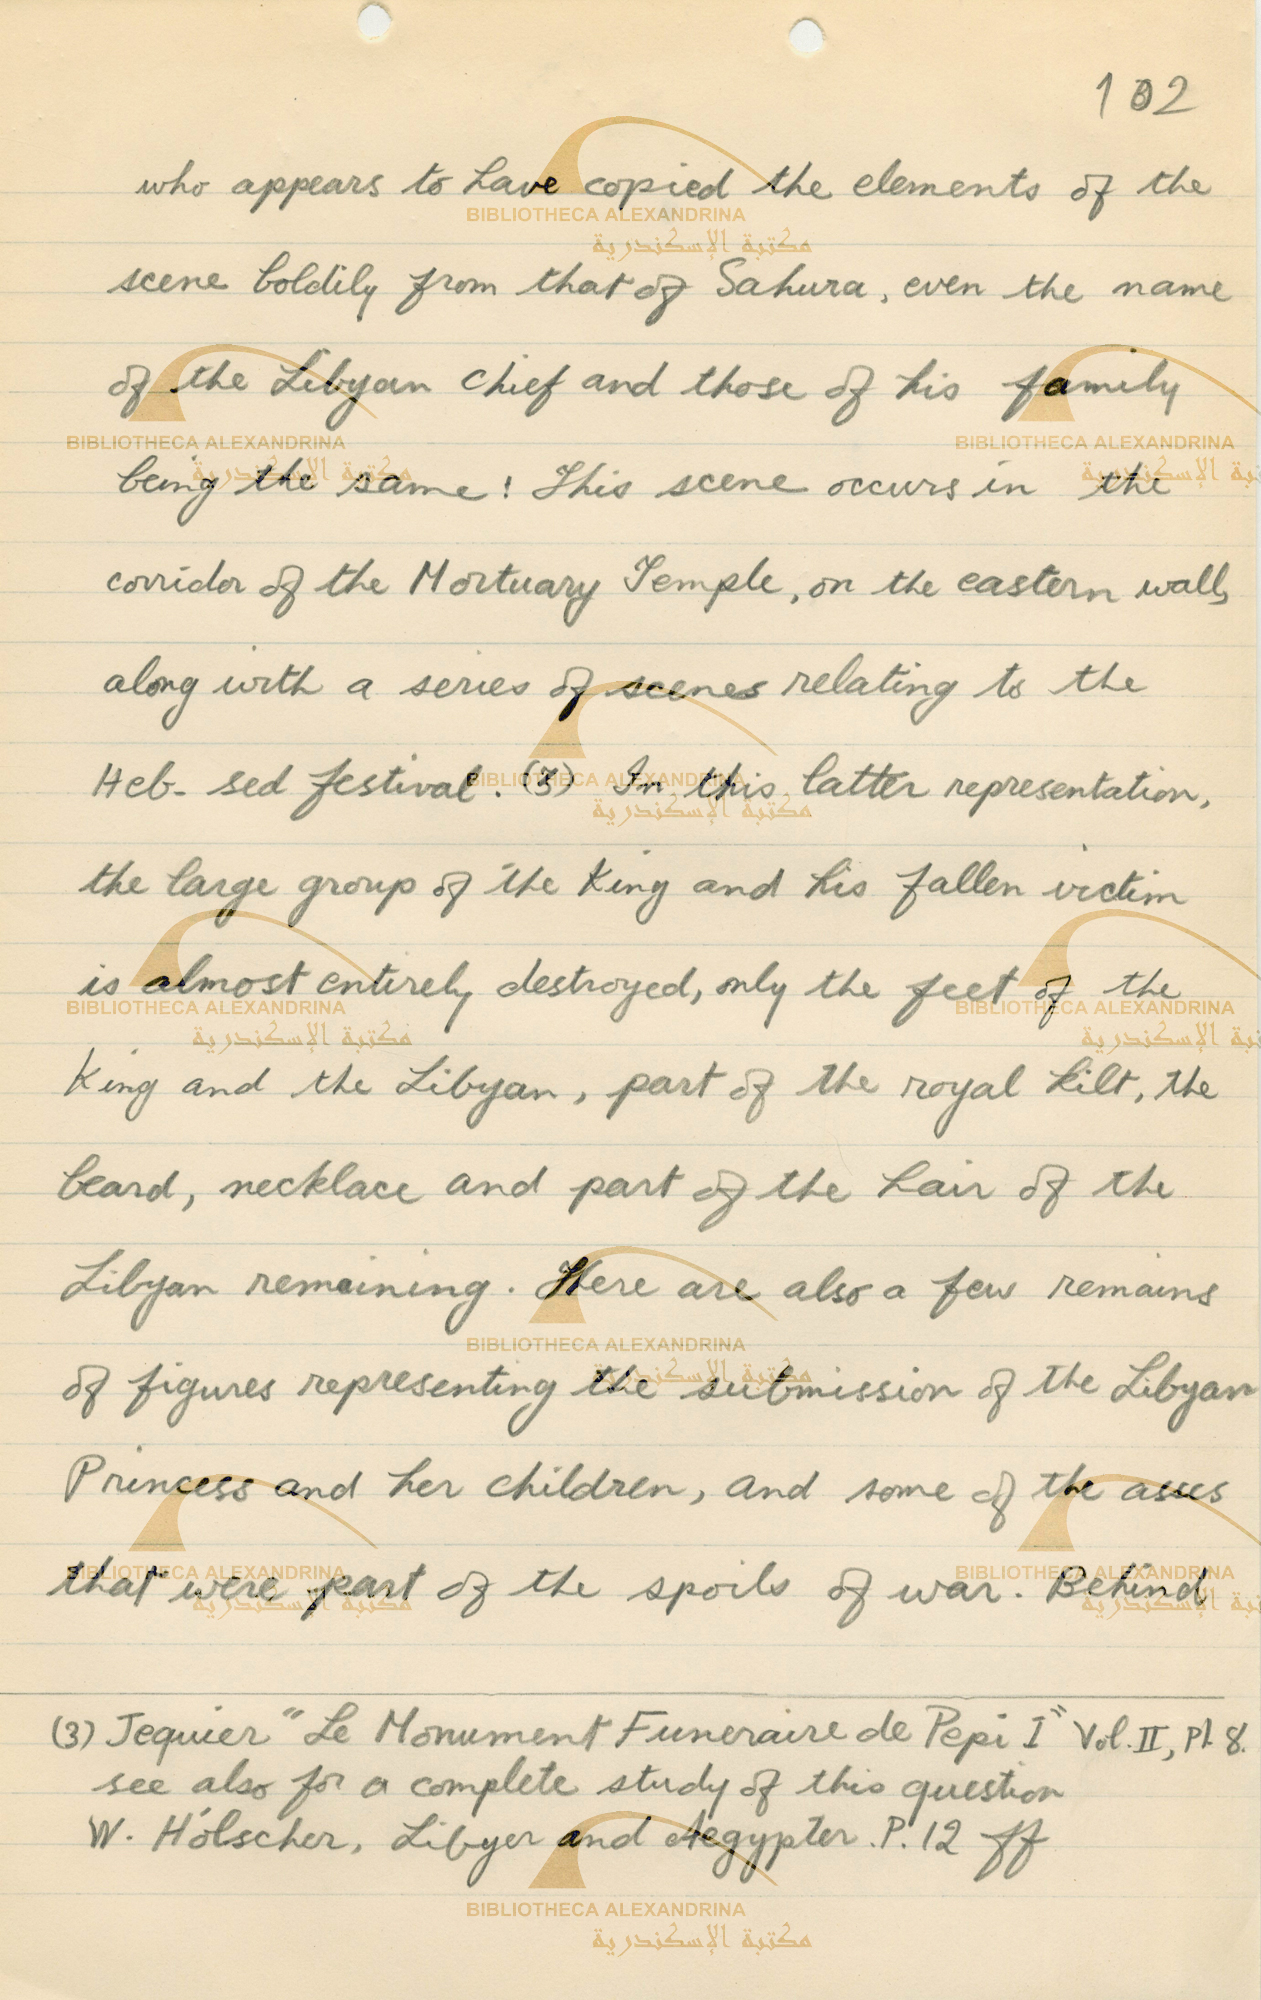 102
who appears to have copied the elements of the
scene boldily from that of Sahura, even the name
of the Libyan Chief and those of his family
being the same! This scene occurs in the
corridor of the Mortuary Temple, on the eastern wall,
along with a series of scenes relating to the
Heb-sed festival. (3) In this latter representation,
the large group of the King and his fallen victim
is almost entirely destroyed, only the feet of the
King and the Libyan, part of the royal kilt, the
beard, necklace and part of the hair of the
Libyan remaining. Here are also a few remains
of figures representing the submission of the Libyan
Princess and her children, and some of the asses
that were part of the spoils of war. Behind
(3) Jequier "Le Monument Funeraire de Pepi I" Vol. II, Pl. 8.
see also for a complete study of this question
W. Hölscher, Libyer and Aegypter. P. 12 ff
BIBLIOTHECA ALEXANDRINA
مكتبة الإسكندرية